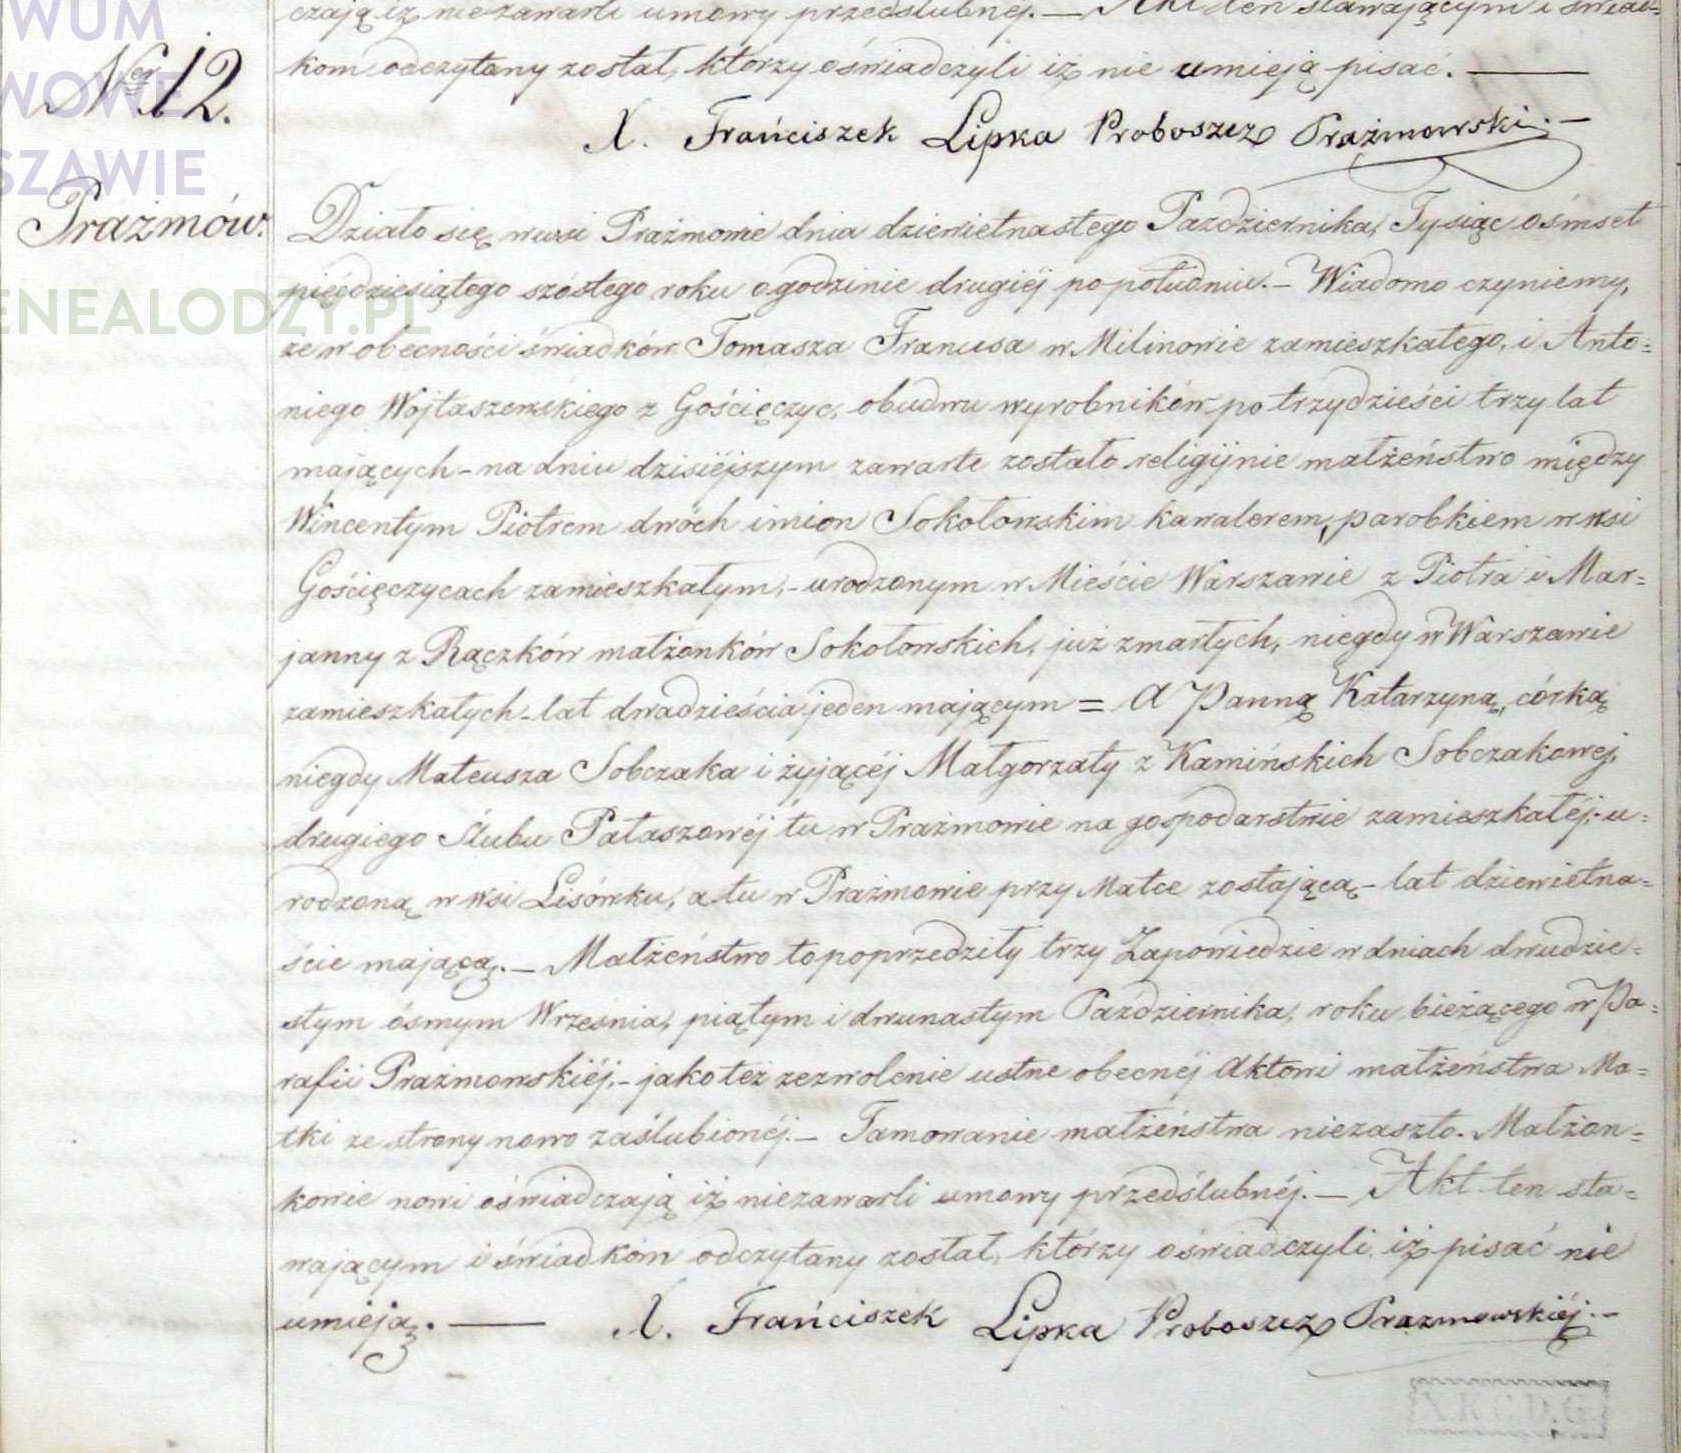 czają iż niezawarli umowy przedślubnéj. — Akt ten stawającym i świad=
kom odczytany został, którzy oświadczyli iż nie umieją pisać. —
X. Frańciszek Lipka Proboszcz Prażmowski. —
WUM
WOWE
SZAWIE
ENEALODZY.PL
Ner 12.
Prażmów.
Działo się w wsi Prażmowie dnia dziewietnastego Pazdziernika, Tysiąc ośmset
pięćdziesiątego szóstego roku o godzinie drugiéj po południu. – Wiadomo czyniemy,
że w obecności świadków Tomasza Francusa w Milinowie zamieszkałego, i Anto=
niego Wojtaszewskiego z Gościęczyc, obudwu wyrobników po trzydzieści trzy lat
mających – na dniu dzisiéjszym zawarte zostało religijnie małżeństwo między
Wincentym Piotrem dwóch imion Sokołowskim kawalerem, parobkiem w wsi
Gościęczycach zamieszkałym, – urodzonym w Mieście Warszawie z Piotra i Mar=
janny z Rączków małżonków Sokołowskich, już zmarłych, niegdy w Warszawie
zamieszkałych – lat dwadzieścia jeden mającym = A Panną Katarzyną, córką
niegdy Mateusza Sobczaka i żyjącéj Małgorzaty z Kamińskich Sobczakowej,
drugiego Ślubu Pałaszowéj tu w Prażmowie na gospodarstwie zamieszkałéj; – u=
rodzoną w wsi Lisówku, a tu w Prażmowie przy Matce zostającą – lat dziewietna=
ście mającą. — Małżeństwo to poprzedziły trzy Zapowiedzie w dniach dwudzie=
stym ósmym Września, piątym i dwunastym Października, roku bieżącego w Pa=
rafii Prażmowskiéj, – jako też zezwolenie ustne obecnéj Aktowi małżeństwa Ma=
tki ze strony nowo zaślubionéj. — Tamowanie małżeństwa niezaszło. Małżon=
kowie nowi oświadczają iż niezawarli umowy przedślubnéj. — Akt ten sta=
wającym i świadkóm odczytany został, którzy oświadczyli, iż pisać nie
umieją. — X. Frańciszek Lipka Proboszcz Prazmowskiéj. —
A.K.C.D.G